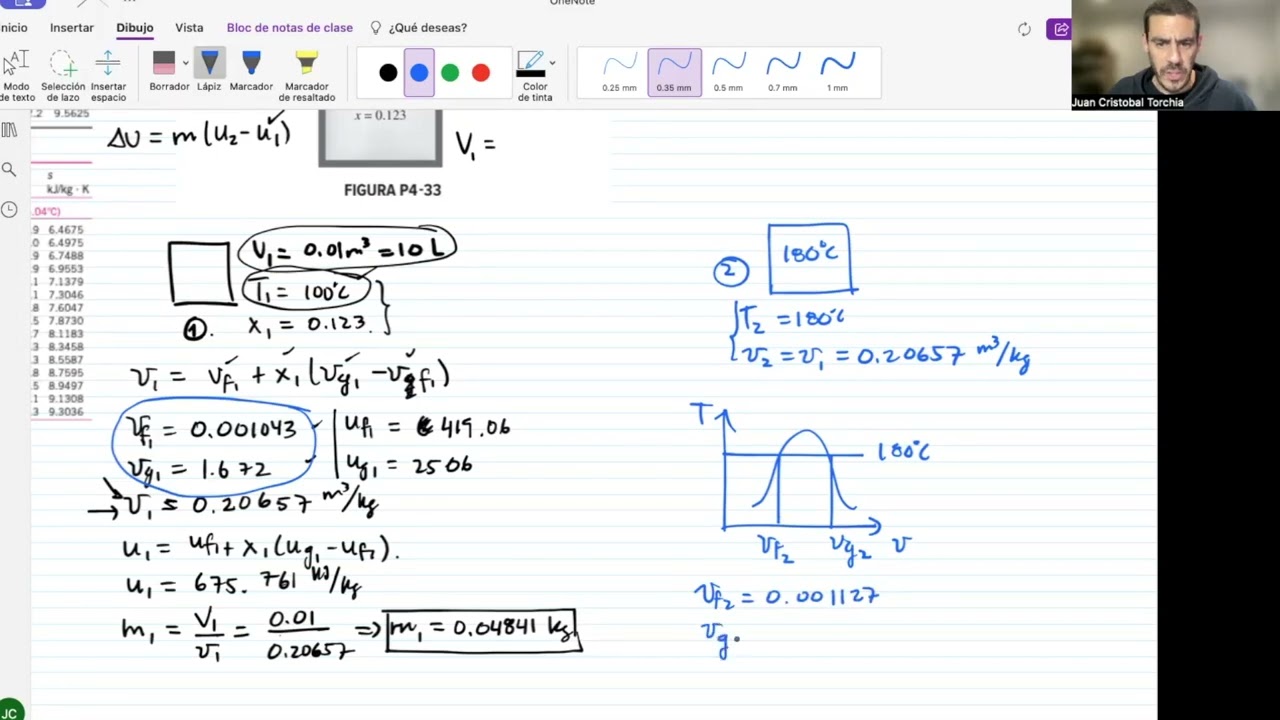 OneNote
nicio Insertar Dibujo Vista Bloc de notas de clase ¿Qué deseas?
Modo de texto
Selección de lazo
Insertar espacio
Borrador
Lápiz
Marcador
Marcador de resaltado
Color de tinta
0.25 mm 0.35 mm 0.5 mm 0.7 mm 1 mm
Juan Cristobal Torchia
.2 9.5625
s
kJ/kg · K
.04°C)
.9 6.4675
.0 6.4975
.9 6.7488
.9 6.9553
.1 7.1379
.1 7.3046
.8 7.6047
.5 7.8730
.7 8.1183
.3 8.3458
.3 8.5587
.8 8.7595
.5 8.9497
.1 9.1308
.3 9.3036
ΔU = m(u₂-u₁)
x = 0.123
V₁ =
FIGURA P4-33
V₁ = 0.01m³ = 10 L
T₁ = 100°C
①. x₁ = 0.123.
v₁ = vf₁ + x₁(vg₁ - vf₁)
vf₁ = 0.001043
uf₁ = 419.06
vg₁ = 1.672
ug₁ = 2506
v₁ = 0.20657 m³/kg
u₁ = uf₁ + x₁(ug₁ - uf₁).
u₁ = 675.761 kJ/kg
m₁ = V₁/v₁ = 0.01/0.20657 => m₁ = 0.04841 kg
② 180°C
T₂ = 180°C
v₂ = v₁ = 0.20657 m³/kg
T
180°C
vf₂ vg₂ v
vf₂ = 0.001127
vg
JC